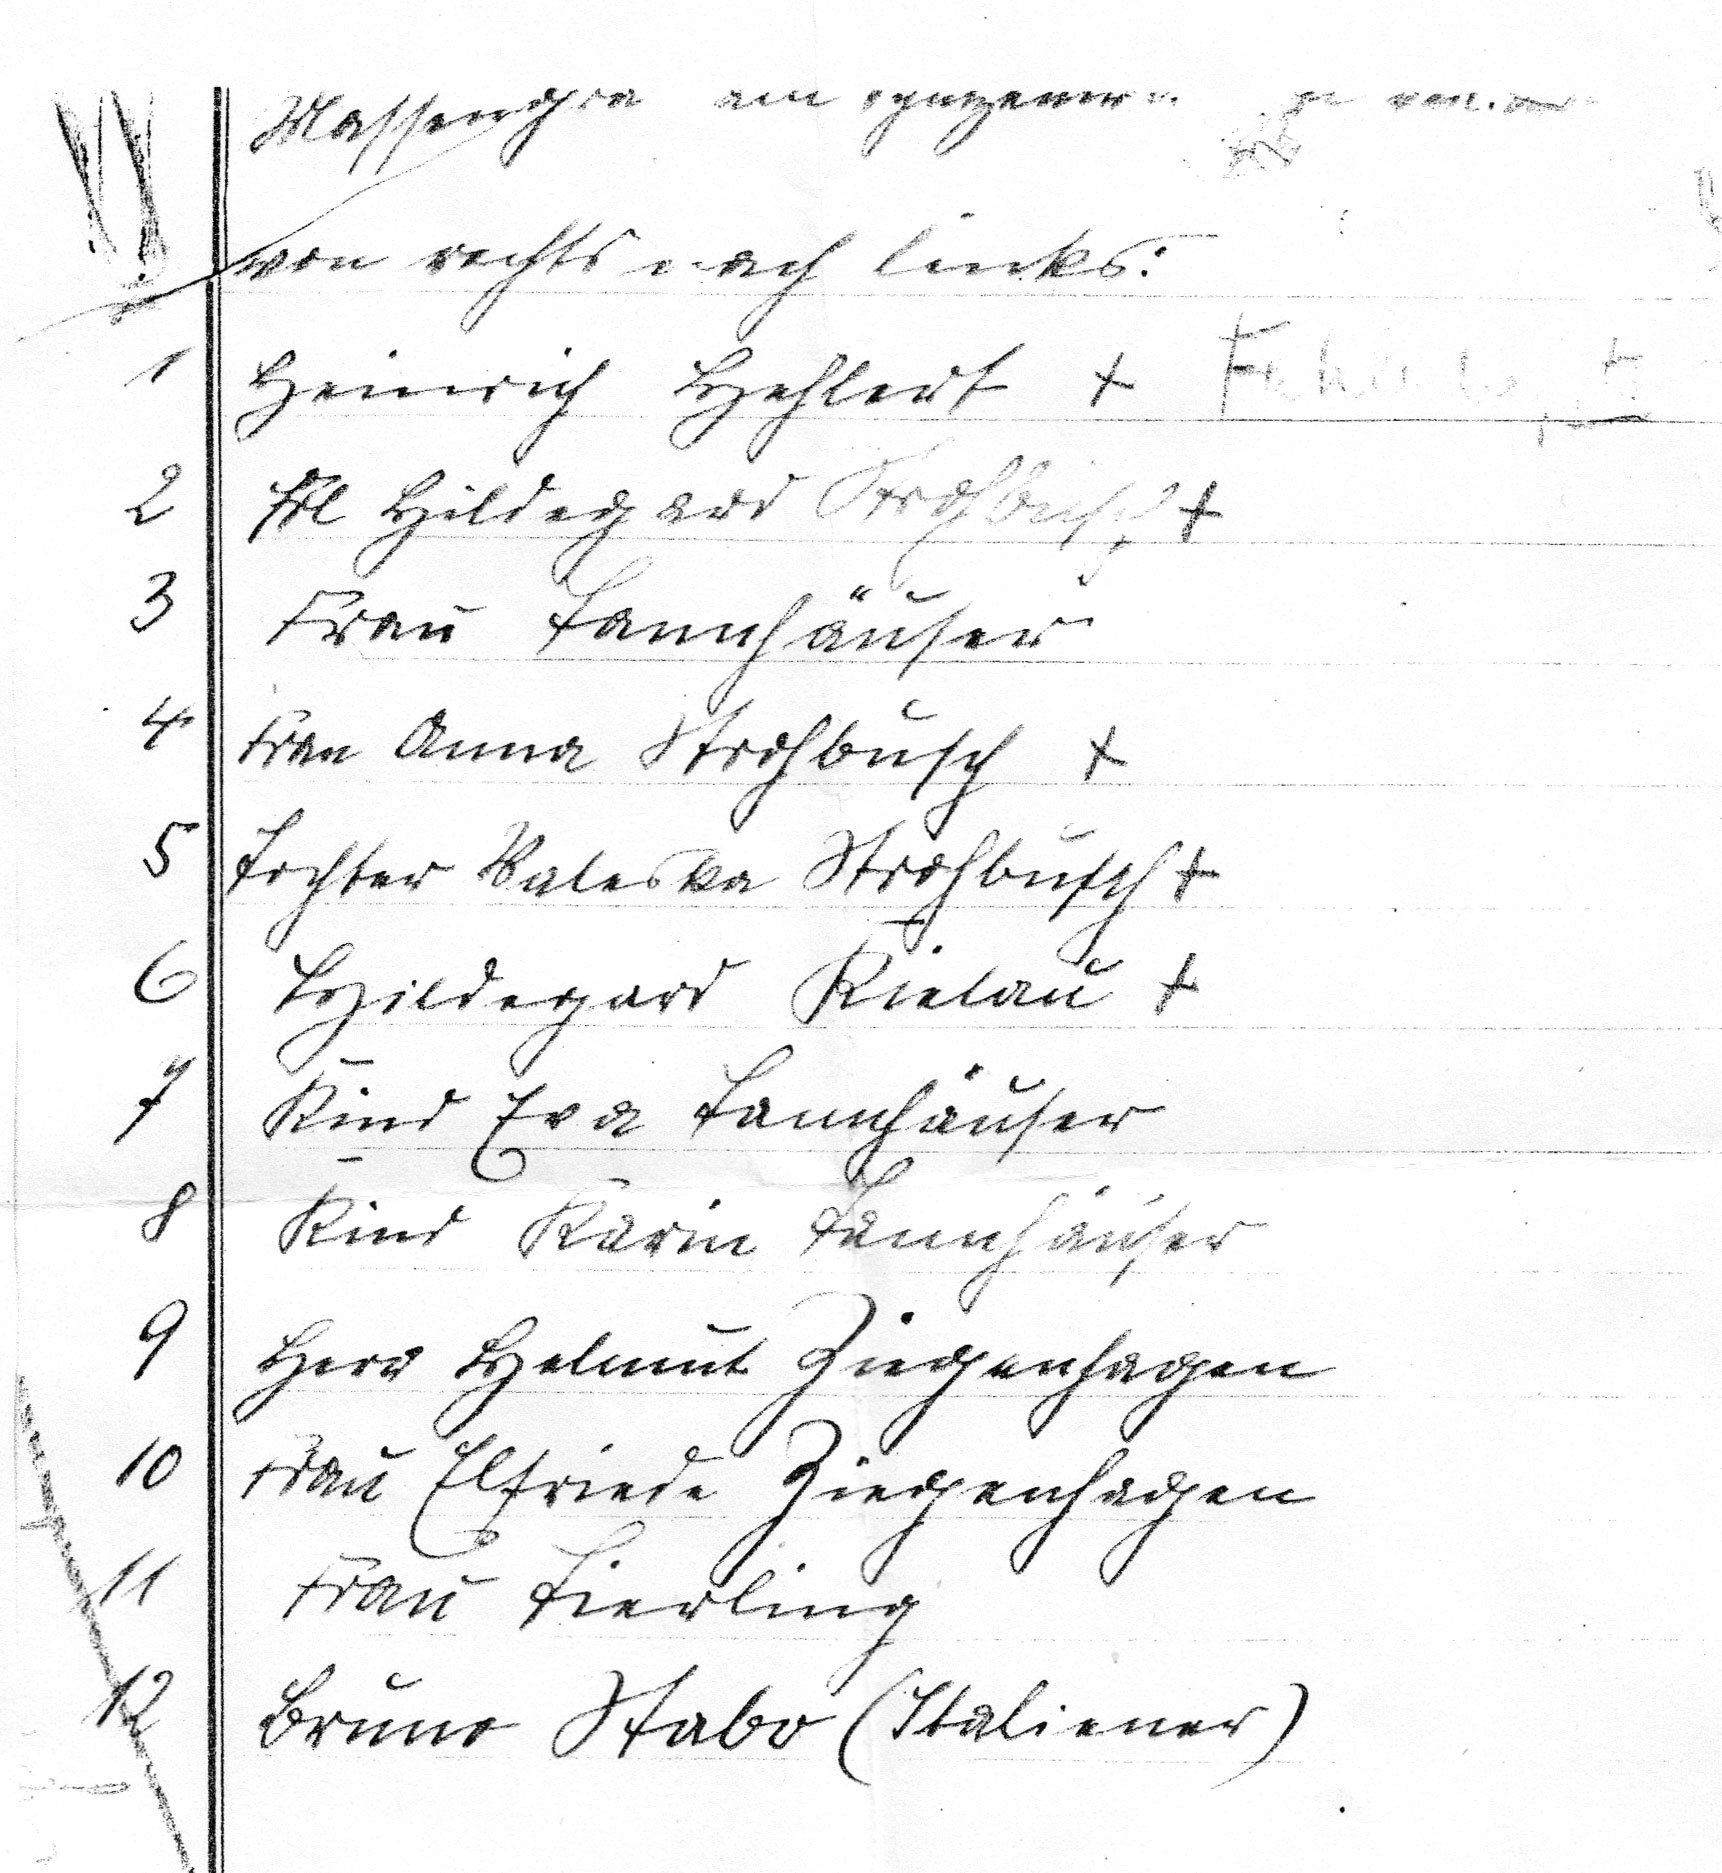 Massengra am
von rechts nach links:
1 Heinrich Hehlert +
2 Frl Hildegard Strohbusch +
3 Frau Tannhäuser
4 Frau Anna Strohbusch +
5 Tochter Valeska Strohbusch +
6 Hildegard Kielau +
7 Kind Eva Tannhäuser
8 Kind Karin Tannhäuser
9 Herr Helmut Ziegenhagen
10 Frau Elfriede Ziegenhagen
11 Frau Fierling
12 Bruno Stabo (Italiener)